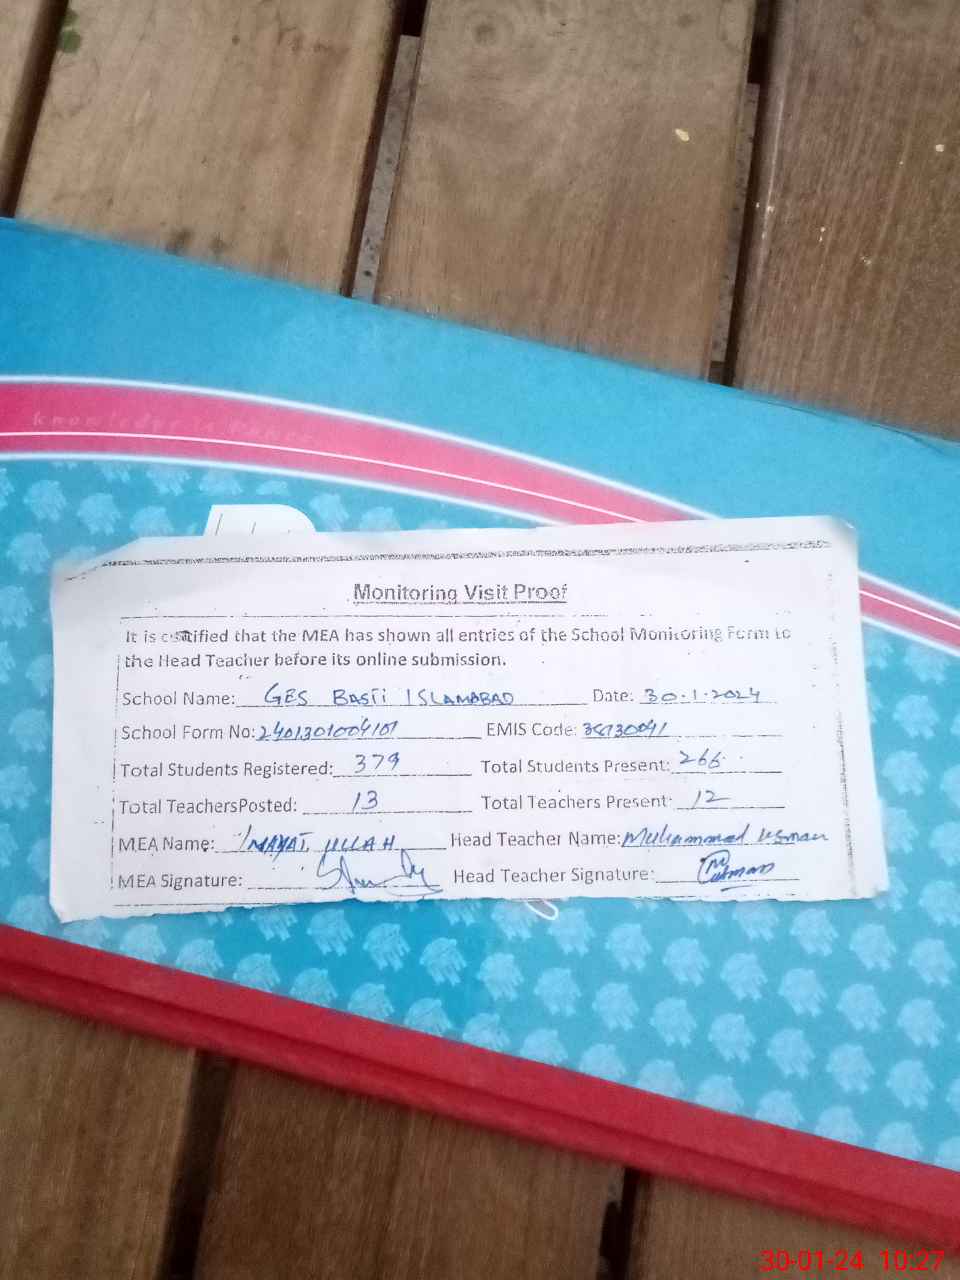 knowledge is Power
Monitoring Visit Proof
It is certified that the MEA has shown all entries of the School Monitoring Form to
the Head Teacher before its online submission.
School Name: GES BASTI ISLAMABAD Date: 30-1-2024
School Form No: EMIS Code:
Total Students Registered: 379 Total Students Present: 266
Total TeachersPosted: 13 Total Teachers Present: 12
MEA Name: INAYAT ULLAH Head Teacher Name: Muhammad Usman
MEA Signature: Head Teacher Signature: Usman
30-01-24 10:27